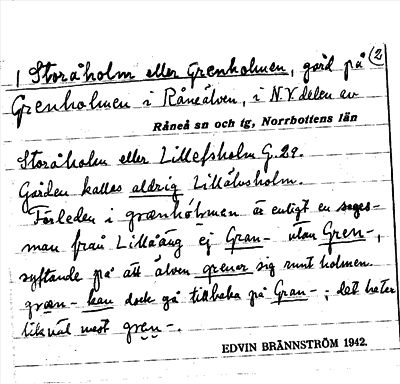 1 Storåholm eller Grenholmen, gård på (2)
Grenholmen i Råneälven, i N.V. delen av
Råneå sn och tg, Norrbottens län
Storåholm eller Lillefsholm G.29.
Gården kallas aldrig Lillälvsholm.
Förleden i grænhólmen är enligt en sages-
man från Lillåäng ej Gran- utan Gren-,
syftande på att älven grenar sig runt holmen.
græn- kan dock gå tillbaka på Gran-; det heter
likväl mest gren-.
EDVIN BRÄNNSTRÖM 1942.